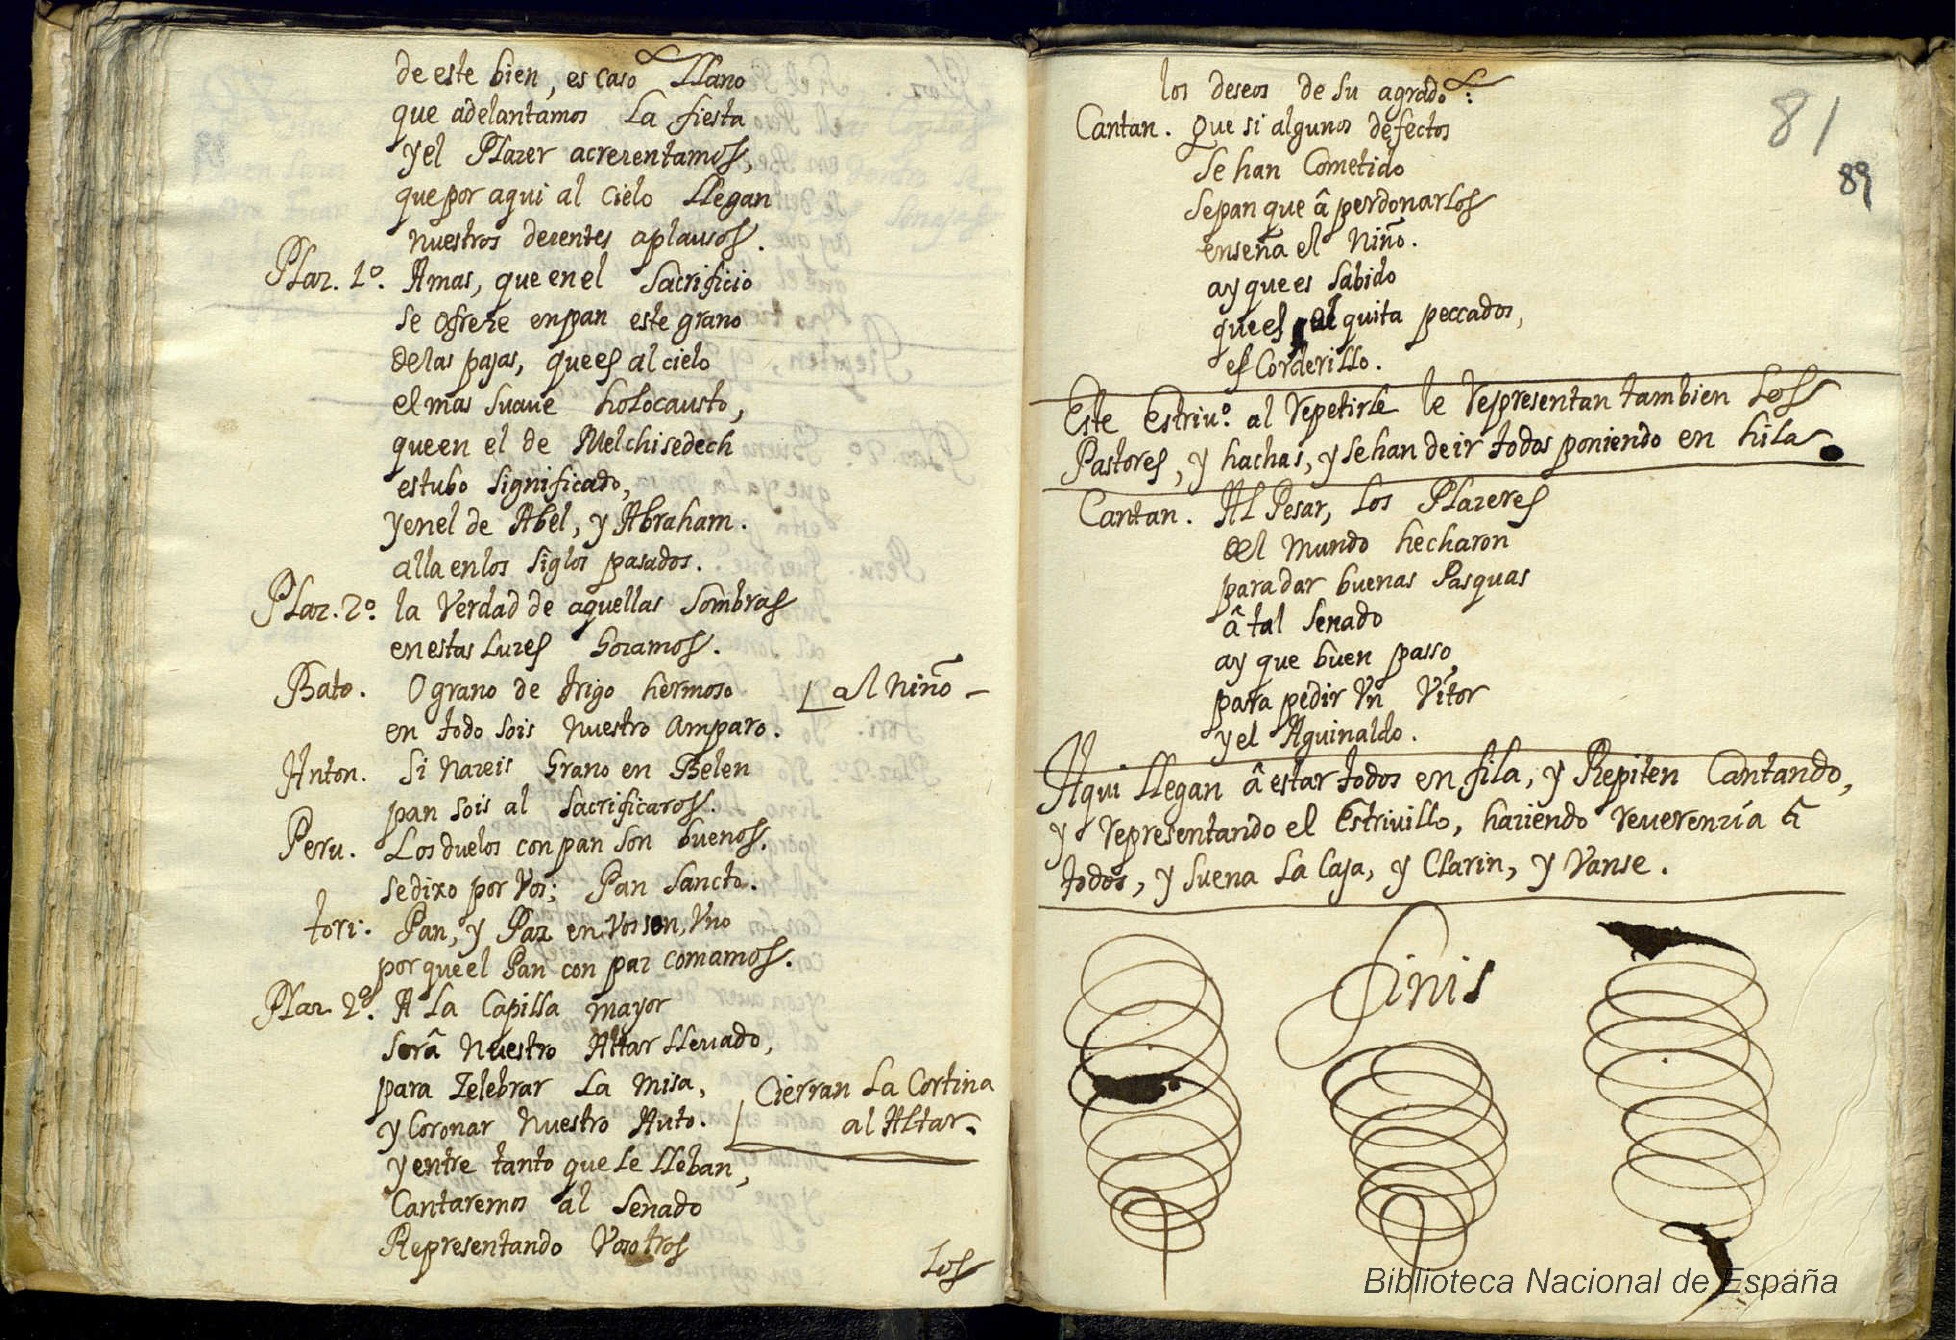 de este bien, es caso Llano
que adelantamos La fiesta
y el Plazer acrezentamos,
que por aqui al Cielo Llegan
nuestros dezentes aplausos.
Plaz. 1º. Amas, que en el Sacrificio
se ofreze en pan este grano
de las pajas, que es al cielo
el mas suaue holocausto,
que en el de Melchisedech
estubo significado,
y en el de Abel, y Abraham.
alla en los siglos pasados.
Plaz. 2º. la Verdad de aquellas Sombras
en estas Luzes Gozamos.
Bato. O grano de trigo hermoso [al Niño -
en todo sois nuestro Amparo.
Anton. Si Nazeis Grano en Belen
pan sois al Sacrificaros.
Peru. Los duelos con pan son buenos.
se dixo por Vos; Pan Sancto.
tori: Pan, y Paz en Vos son, Vno
por que el Pan con paz comamos.
Plaz. 2º. A La Capilla mayor
serâ Nuestro Altar lleuado,
para Zelebrar La Misa,
y Coronar Nuestro Auto.
Cierran La Cortina
al Altar.
y entre tanto que Le lleban,
Cantaremos al Senado
Representando Vosotros
Los
81
89
los deseos de su agrado:
Cantan. Que si algunos defectos
Se han Cometido
Sepan que â perdonarlos
enseña el Niño.
ay que es sabido
que es el quita peccados,
es Corderillo.
Este Estriuº. al repetirle le representan tambien Los
Pastores, y hachas, y se han de ir todos poniendo en hila.
Cantan. Al Pesar, Los Plazeres
del Mundo hecharon
para dar buenas Pasquas
â tal Senado
ay que buen passo,
para pedir Vn Vítor
y el Aguinaldo.
Aqui llegan â estar todos en fila, y Repiten Cantando,
y representando el Estrivillo, haziendo reuerenzia â
todos, y suena La Caja, y Clarin, y Vanse.
Finis
Biblioteca Nacional de España